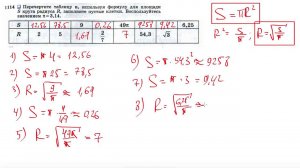 1114 Перечертите таблицу и, используя формулу для площади
S круга радиуса R, заполните пустые клетки. Воспользуйтесь
значением π = 3,14.
S 12,56 78,5 9 0,26 49π 9258 9,42 6,25
R 2 5 1,69 2/7 7 54,3 √3
S = πR²
R² = S/π, R = √(S/π)
1) S = π · 4 = 12,56
2) S = π · 25 = 78,5
3) R = √(9/π) ≈ 1,69
4) S = π · 4/49 ≈ 0,26
5) R = √(49π/π) = 7
6) S = π · 54,3² ≈ 9258
7) S = π · 3 = 9,42
8) R = √(6,25/π) ≈